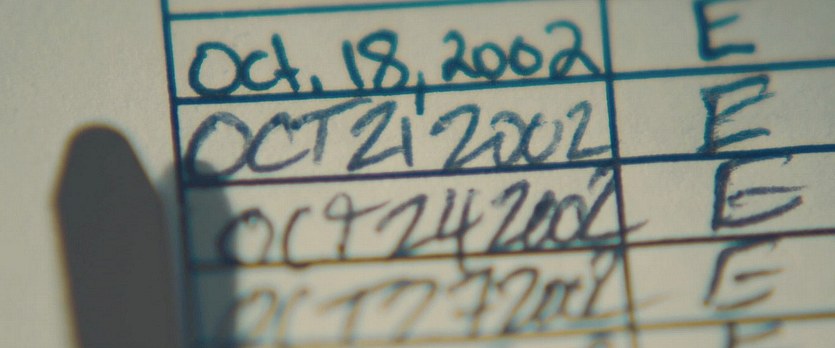 Oct. 18, 2002 E
OCT 21 2002 E
OCT 24 2002 E
OCT 27 2002 E